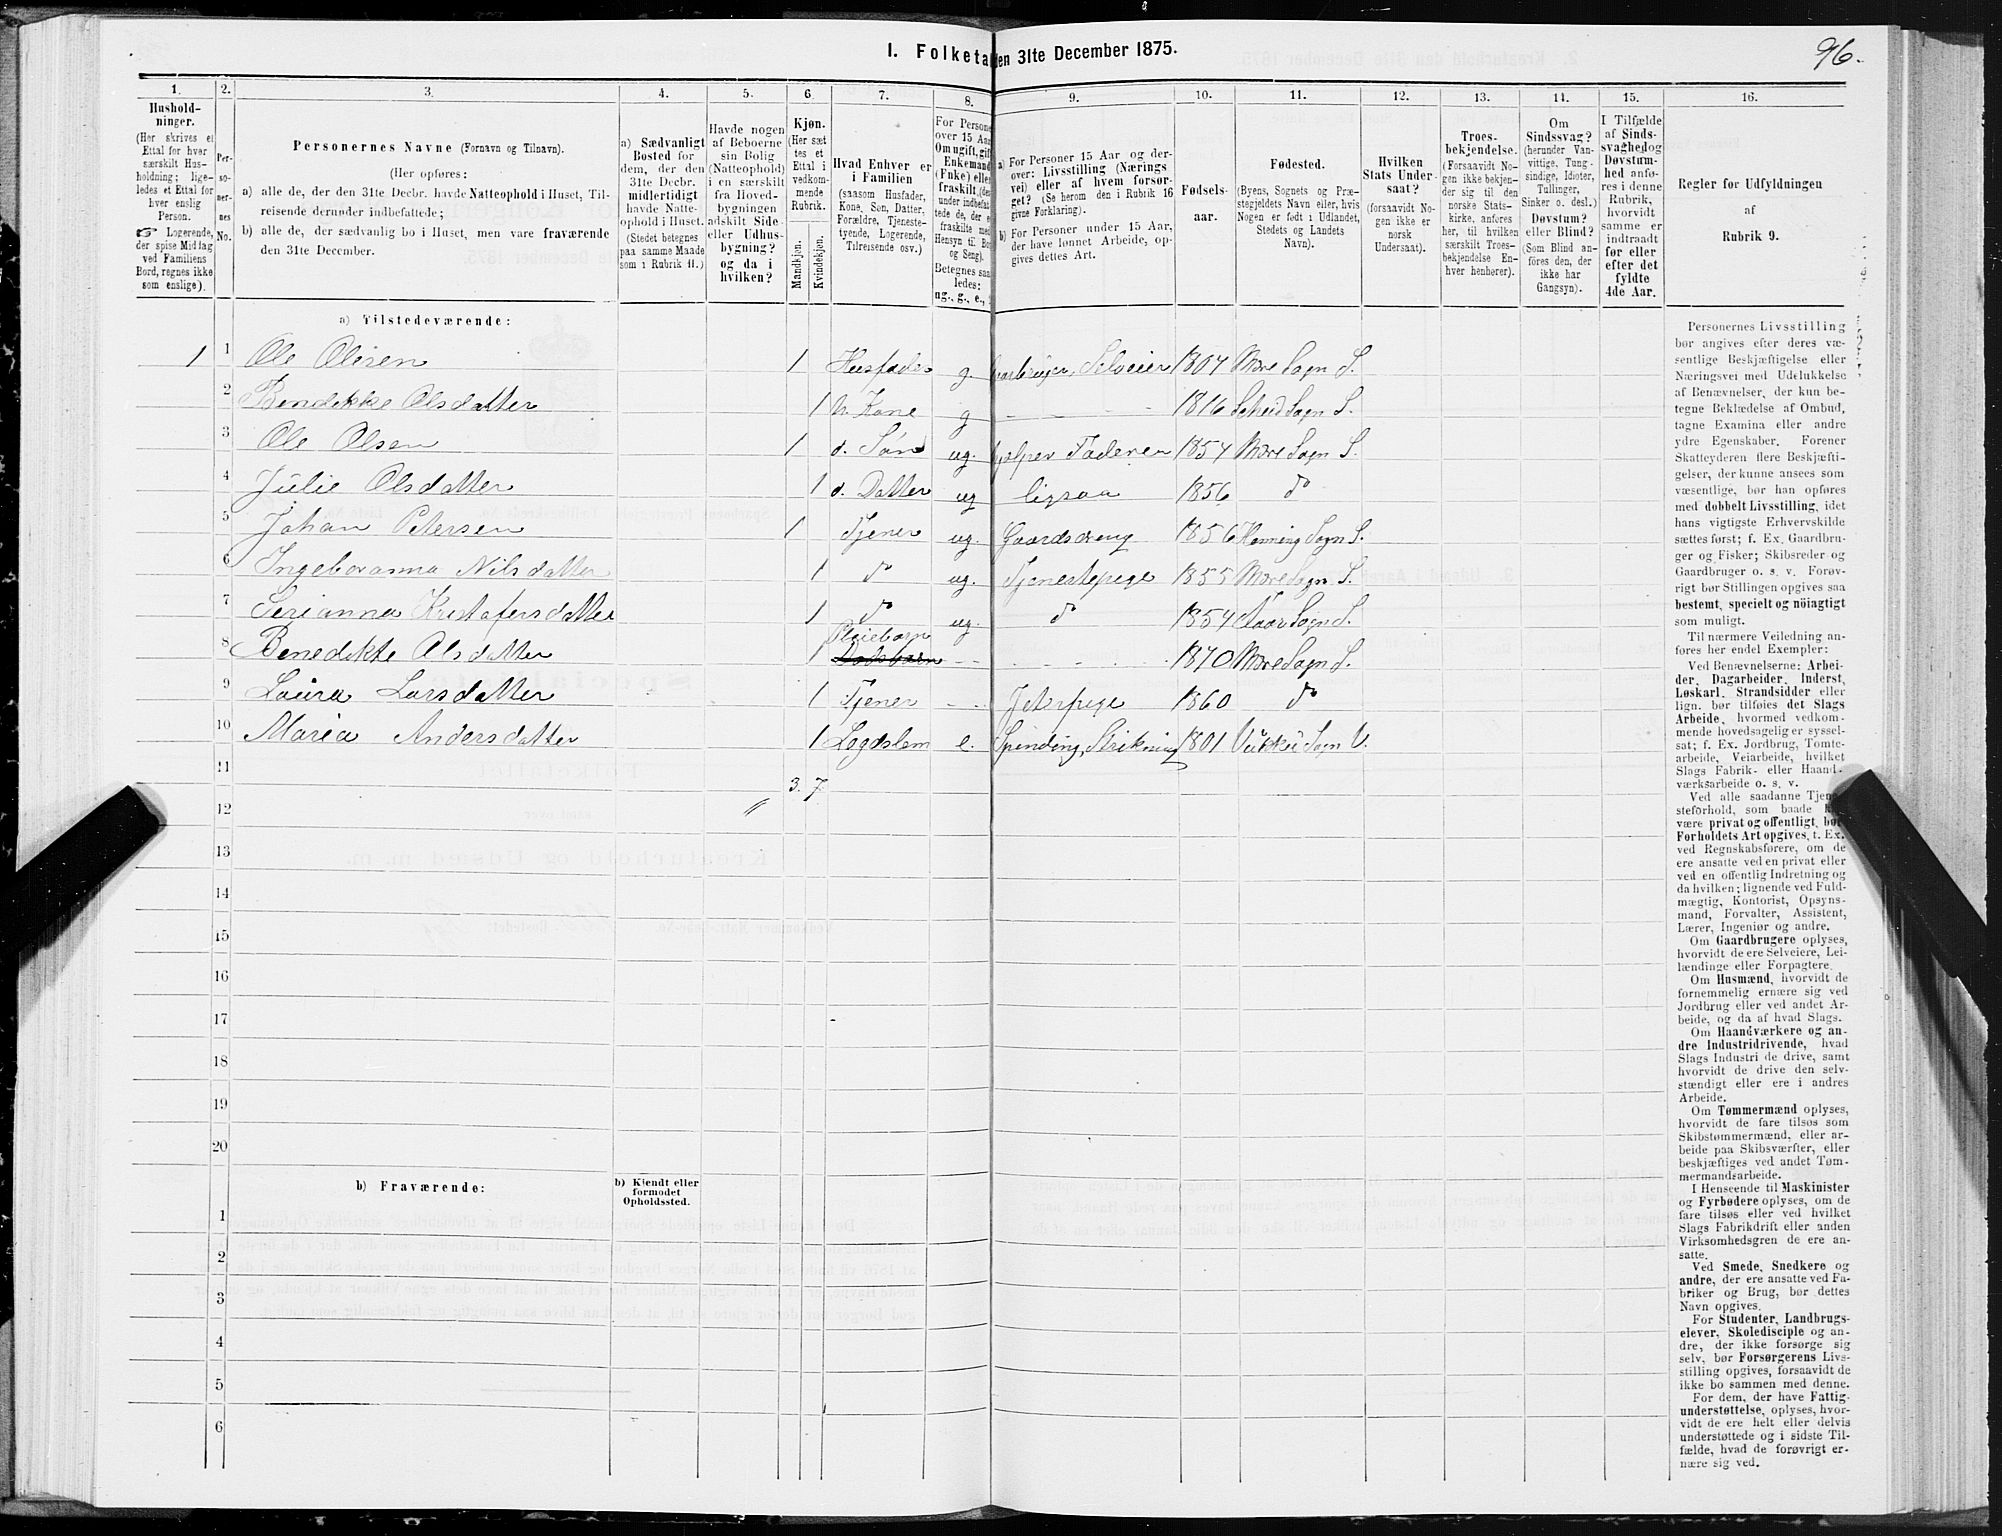 96.
I. Folketa
den 31te December 1875.
1. 2. 3. 4. 5. 6. 7. 8. 9. 10. 11. 12. 13. 14. 15. 16.
Hushold-
ninger.
(Her skrives et
Ettal for hver
særskilt Hus-
holdning; lige-
ledes et Ettal for
hver enslig
Person.
☞ Logerende,
der spise Middag
ved Familiens
Bord, regnes ikke
som enslige).
Per-
so-
ner-
nes
No.
Personernes Navne (Fornavn og Tilnavn).
(Her opføres:
a) alle de, der den 31te Decbr. havde Natteophold i Huset, Til-
reisende derunder indbefattede;
b) alle de, der sædvanlig bo i Huset, men vare fraværende
den 31te December.
a) Sædvanligt
Bosted for
dem, der den
31te Decbr.
midlertidigt
havde Natte-
ophold i Huset.
(Stedet betegnes
paa samme Maade
som i Rubrik 11.)
Havde nogen
af Beboerne
sin Bolig
(Natteophold)
i en særskilt
fra Hoved-
bygningen
adskilt Side-
eller Udhus-
bygning?
og da i
hvilken?
Kjøn.
(Her sæt-
tes et
Ettal i
vedkom-
mende
Rubrik.
Mandkjøn.
Kvindekjøn.
Hvad Enhver er
i Familien
(saasom Husfader,
Kone, Søn, Datter,
Forældre, Tjeneste-
tyende, Logerende,
Tilreisende osv.)
For Persone
over 15 Aar
Om ugift, gift,
Enkemand
(Enke) eller
fraskilt, (de
under indbefat-
tede de, der e
fraskilte med
Hensyn til Bo
og Seng).
Betegnes saa-
ledes:
ug., g., e.,
a) For Personer 15 Aar og der-
over: Livsstilling (Nærings-
vei) eller af hvem forsør-
get? (Se herom den i Rubrik 16
givne Forklaring).
b) For Personer under 15 Aar,
der have lønnet Arbeide, op-
gives dettes Art.
Fødsels-
aar.
Fødested.
(Byens, Sognets og Præ-
stegjeldets Navn eller, hvis
Nogen er født i Udlandet,
Stedets og Landets
Navn).
Hvilken
Stats Under-
saat?
(forsaavidt No-
gen ikke er
norsk
Undersaat).
Troes-
bekjendelse.
(Forsaavidt No-
gen ikke bekjen-
der sig til den
norske Stats-
kirke, anføres
her, til hvilken
særskilt Troes-
bekjendelse En-
hver henhører).
Om
Sindssvag?
(herunder Van-
vittige, Tung-
sindige, Idioter,
Tullinger,
Sinker o. desl.)
Døvstum?
eller Blind?
(Som Blind an-
føres den, der
ikke har
Gangsyn).
I Tilfælde
af Sinds-
svaghed og
Døvstum-
hed anfø-
res i denne
Rubrik,
hvorvidt
samme er
indtraadt
før eller
efter det
fyldte
4de Aar.
Regler for Udfyldningen
af
Rubrik 9.
a) Tilstedeværende:
1 1 Ole Olsen 1 Husfader g. Selveier 1804 More Sogn S.
2 Bendikke Olsdatter 1 h. Kone g - - - 1816 Scheid Sogn S.
3 Ole Olsen 1 d. Søn ug. hjelper Faderen 1854 More Sogn S.
4 Julie Olsdatter 1 d. Datter ug ligesaa 1856 do
5 Johan Petersen 1 Tjener ug. Gaardsdreng 1856 Henning Sogn S.
6 Ingeboranna Nilsdatter 1 do ug. Tjenestepige 1855 More Sogn S.
7 Serianna Kristofersdatter 1 do ug. do 1854 Sogn S.
8 Benedikte Olsdatter 1 Pleiebarn - - - 1870 More Sogn S.
9 Laura Larsdatter 1 Tjener - - Jeterpige 1860 do
10 Maria Andersdatter 1 Lægdslem e. Spinding, Strikning 1801 Vukku Sogn V.
11 3. 7.
12 "
13
14
15
16
17
18
19
20
b) Fraværende:
b) Kjendt eller
formodet
Opholdssted.
1
2
3
4
5
6
Personernes Livsstilling
bør angives efter deres væ-
sentlige Beskjæftigelse eller
Næringsvei med Udelukkelse
af Benævnelser, der kun be-
tegne Beklædelse af Ombud,
tagne Examina eller andre
ydre Egenskaber. Forener
Skatteyderen flere Beskjæfti-
gelser, der kunne ansees som
væsentlige, bør han opføres
med dobbelt Livsstilling, idet
hans vigtigste Erhvervskilde
sættes først; f. Ex. Gaardbru-
ger og Fisker; Skibsreder og
Gaardbruger o. s. v. Forøv-
rigt bør Stillingen opgives saa
bestemt, specielt og nöiagtigt
som muligt.
Til nærmere Veiledning an-
føres her endel Exempler:
Ved Benævnelserne: Arbei-
der, Dagarbeider, Inderst,
Løskarl, Strandsidder eller
lign. bør tilføies det Slags
Arbeide, hvormed vedkom-
mende hovedsagelig er syssel-
sat; f. Ex. Jordbrug, Tomte-
arbeide, Veiarbeide, hvilket
Slags Fabrik- eller Haand-
værksarbeide o. s. v.
Ved alle saadanne Tjene-
steforhold, som baade kan
være privat og offentligt, bør
Forholdets Art opgives, t. Ex.
ved Regnskabsførere, om de
ere ansatte ved en privat eller
ved en offentlig Indretning og
da hvilken; lignende ved Fuld-
mægtig, Kontorist, Opsyns-
mand, Forvalter, Assistent,
Lærer, Ingeniør og andre.
Om Gaardbrugere oplyses,
hvorvidt de ere Selveiere, Lei-
lændinge eller Forpagtere.
Om Husmænd, hvorvidt de
fornemmelig ernære sig ved
Jordbrug eller ved andet Ar-
beide, og da af hvad Slags.
Om Haandværkere og an-
dre Industridrivende, hvad
Slags Industri de drive, samt
hvorvidt de drive den selv-
stændigt eller ere i andres
Arbeide.
Om Tømmermænd oplyses,
hvorvidt de fare tilsøs som
Skibstømmermænd, eller ar-
beide paa Skibsværfter, eller
beskjæftiges ved andet Tøm-
mermandsarbeide.
I Henseende til Maskinister
og Fyrbødere oplyses, om de
fare tilsøs eller ved hvilket
Slags Fabrikdrift eller anden
Virksomhedsgren de ere an-
satte.
Ved Smede, Snedkere og
andre, der ere ansatte ved Fa-
briker og Brug, bør dettes
Navn opgives.
For Studenter, Landbrugs-
elever, Skoledisciple og an-
dre, der ikke forsørge sig
selv, bør Forsørgerens Livs-
stilling opgives, forsaavidt de
ikke bo sammen med denne.
For dem, der have Fattig-
understøttelse, oplyses, hvor-
vidt de ere helt eller delvis
understøttede og i sidste Til-
fælde, hvad de forøvrigt er-
nære sig ved.